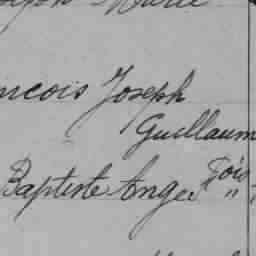 Marie
ncois Joseph
Guellaum
Baptiste Ange